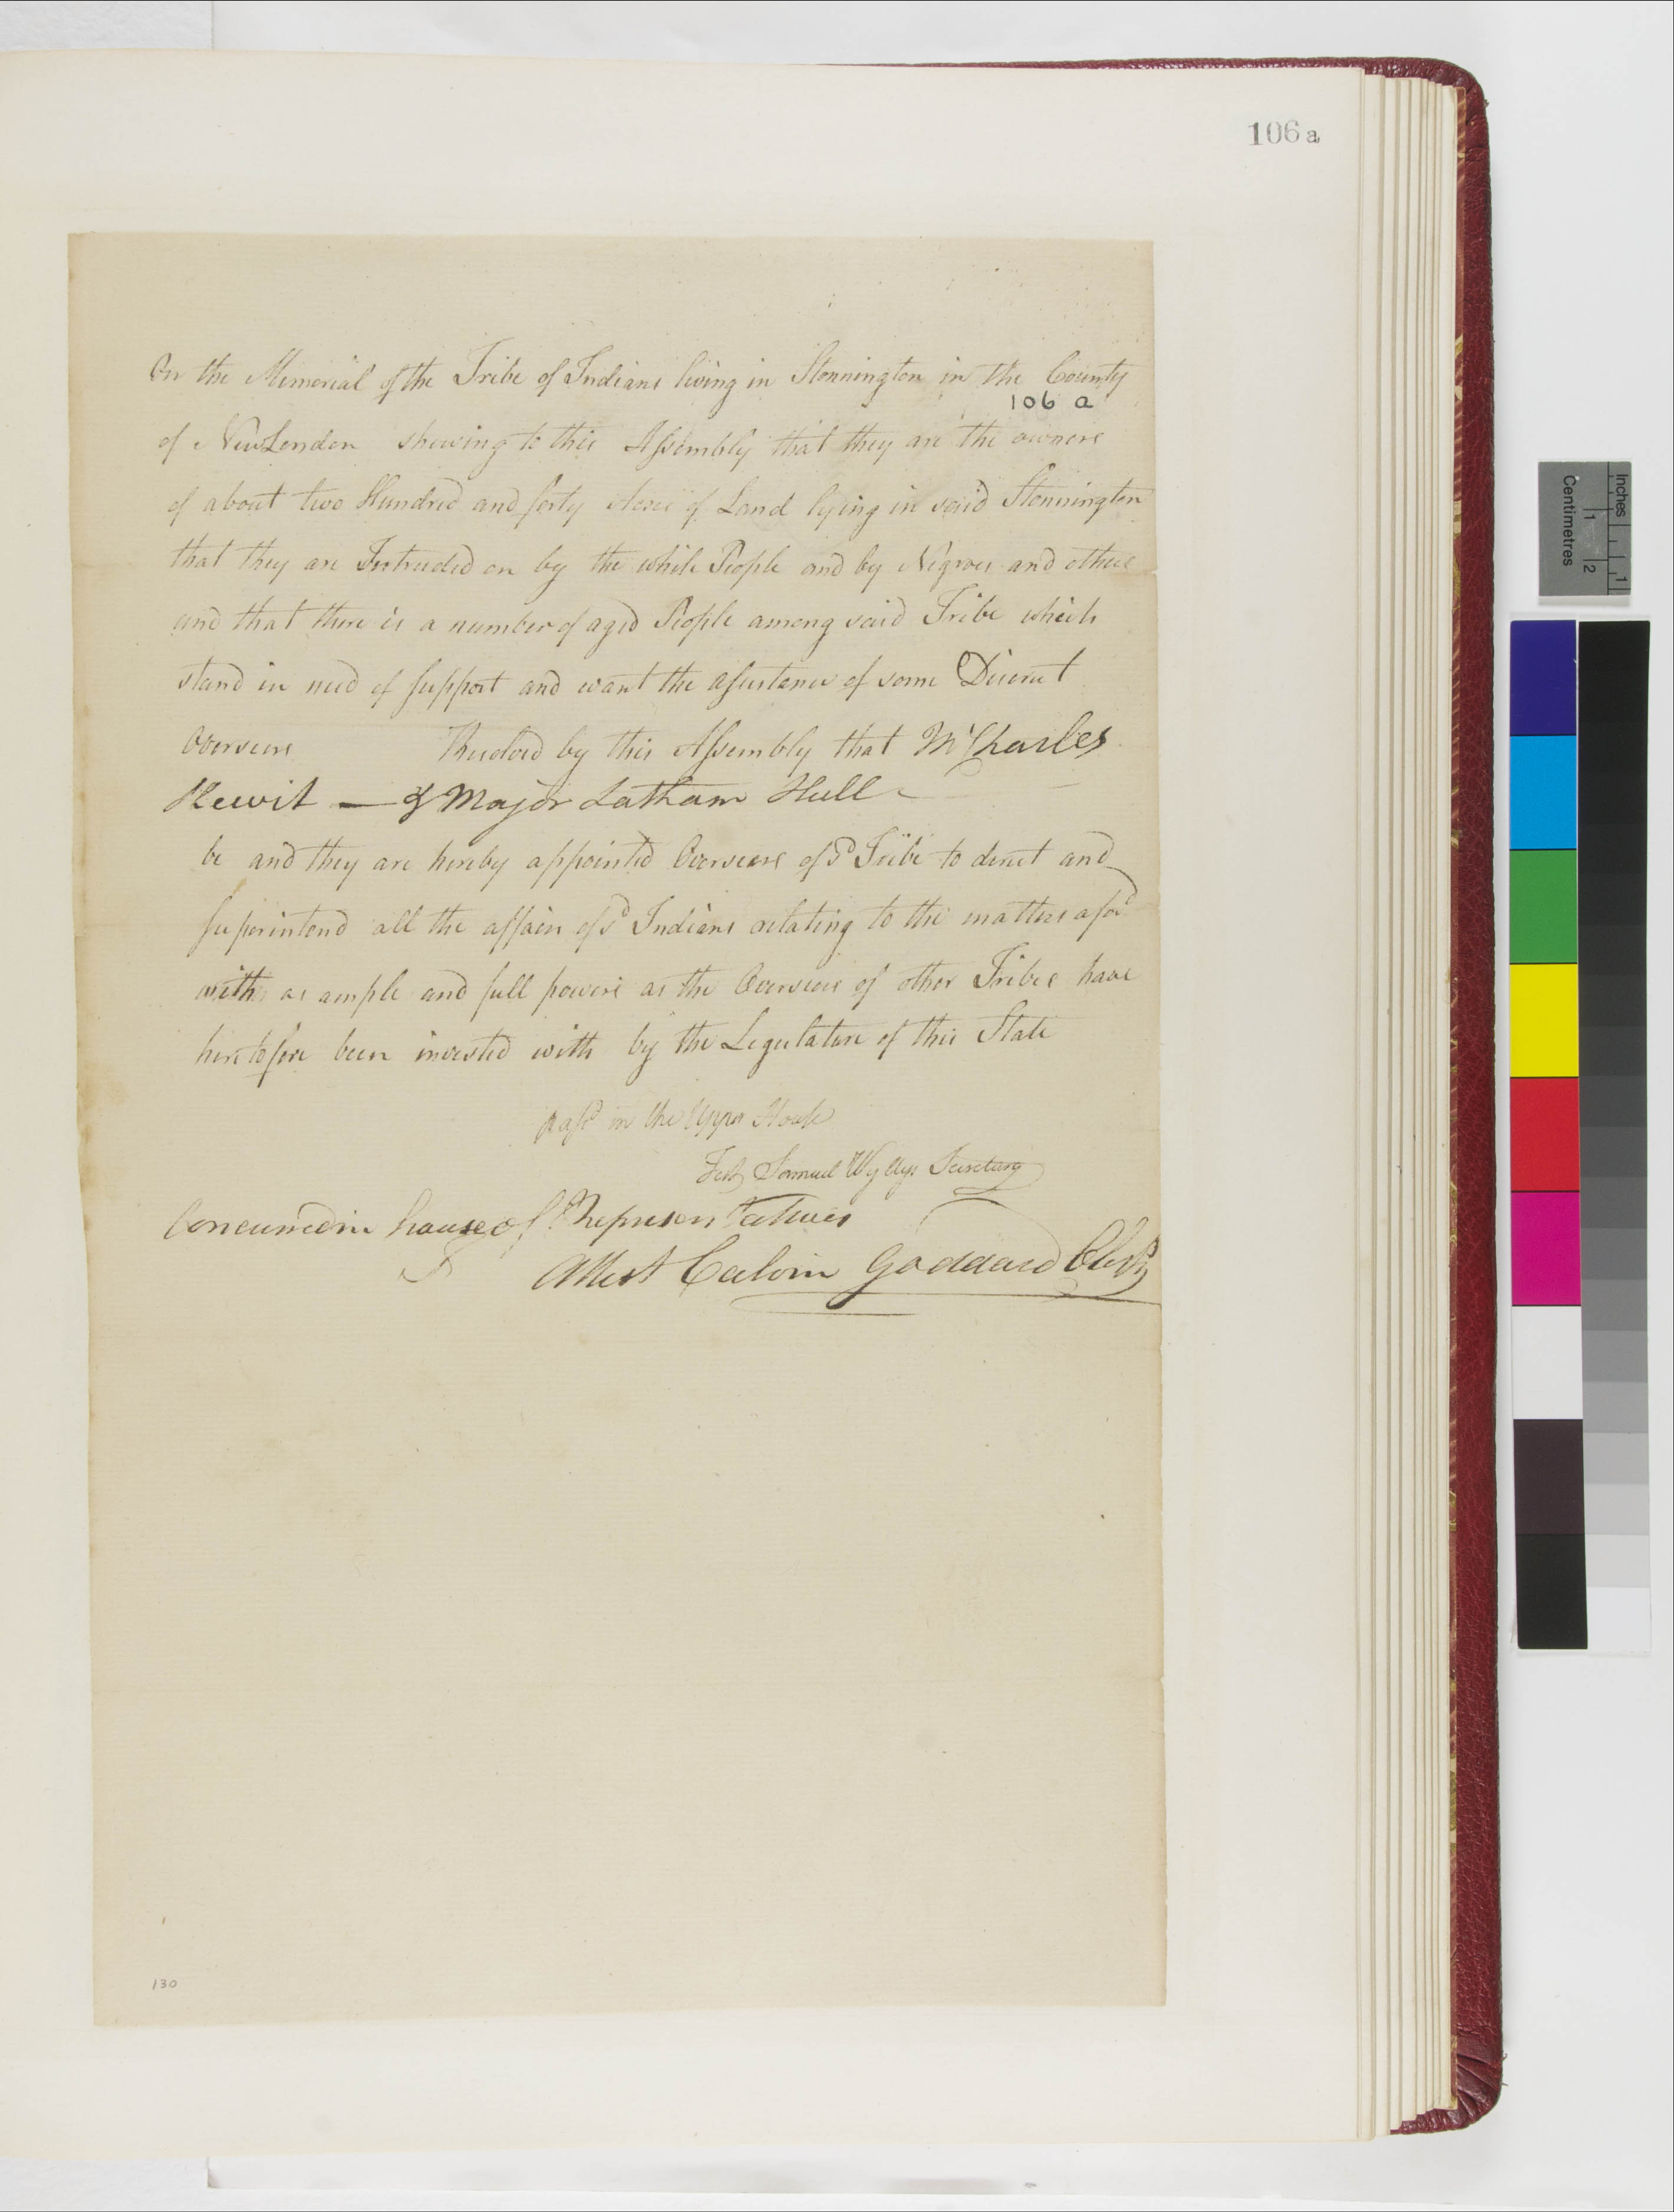 106 a
On the Memorial of the Tribe of Indians living in Stonnington in the County
106 a
of New London shewing to this Assembly that they are the owners
of about two Hundred and forty Acres of Land lying in said Stonnington
that they are Intruded on by the white People and by Negroes and others
and that there is a number of aged People among said Tribe which
stand in need of support and want the assistance of some Discreet
Overseers Resolved by this Assembly that Mr Charles
Hewit — & Major Latham Hull
be and they are hereby appointed Overseers of sd Tribe to direct and
superintend all the affairs of sd Indians relating to the matters aford
with as ample and full powers as the Overseers of other Tribes have
heretofore been invested with by the Legislature of this State
Passd in the Upper House
Test Samuel Wyllys Secretary
Concurred in house of Representatives
Attest Calvin Goddard Clerk
130
Inches
1
1
2
Centimetres